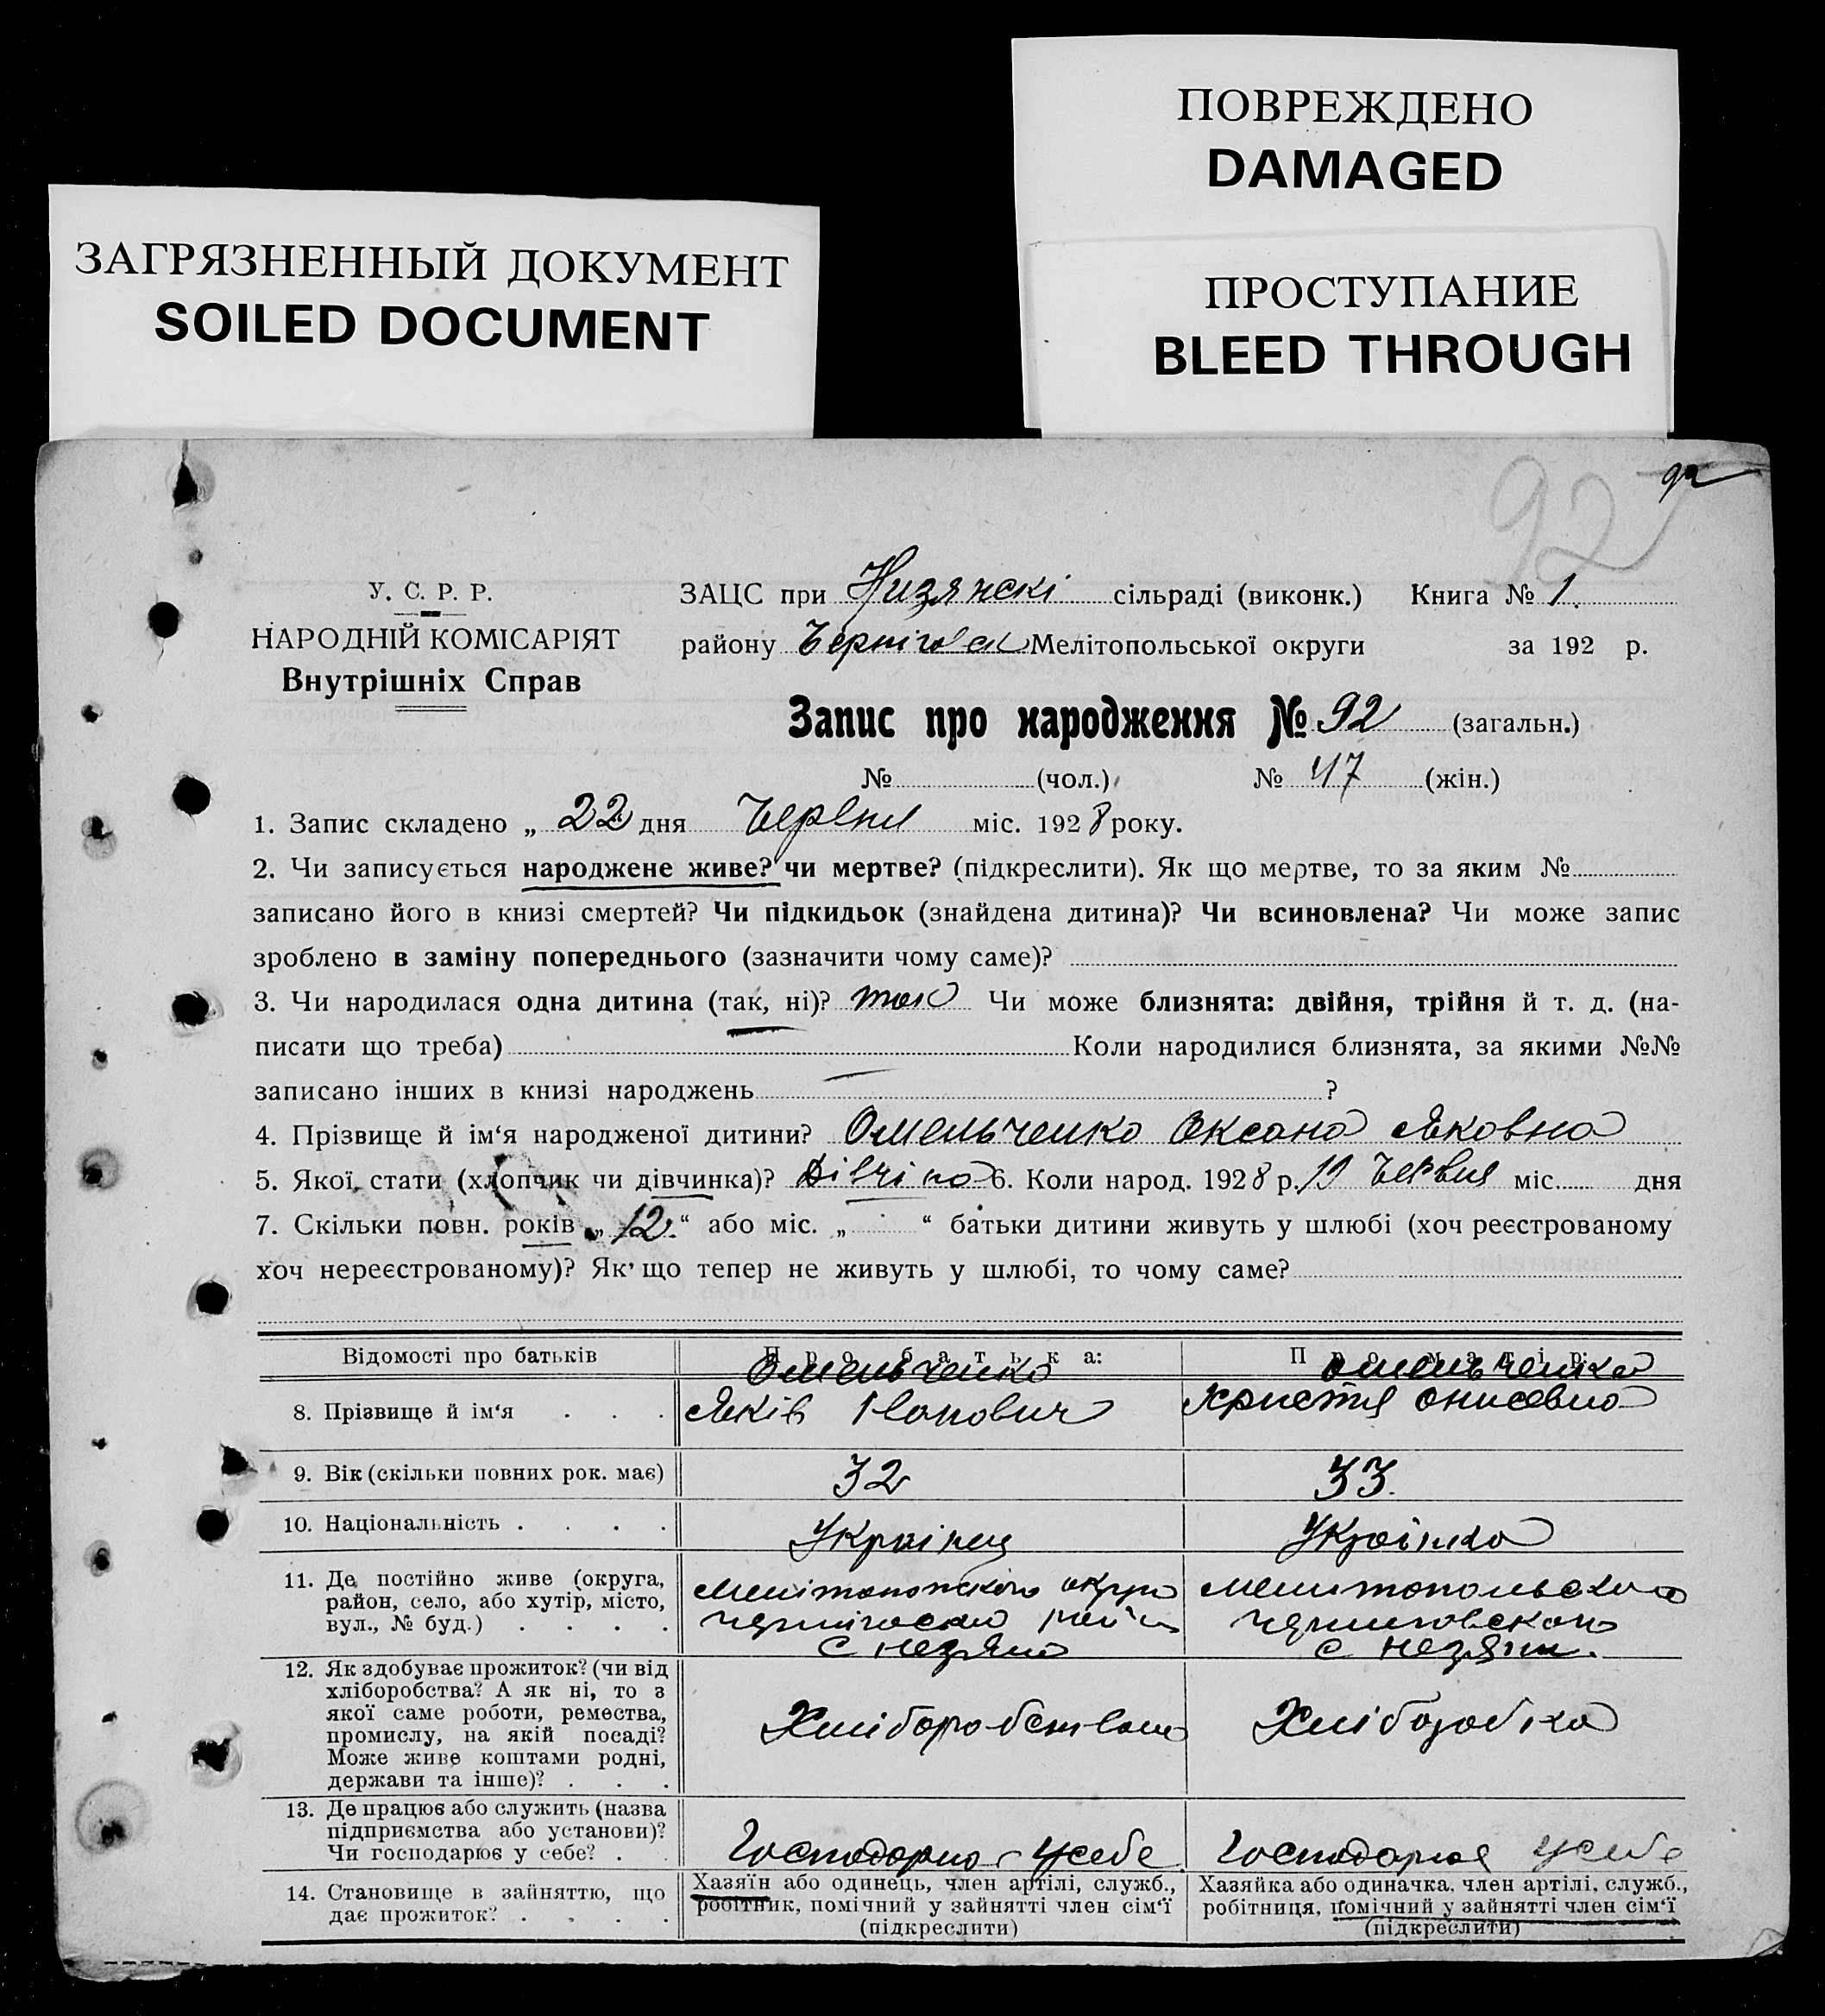 ПОВРЕЖДЕНО
DAMAGED
ЗАГРЯЗНЕННЫЙ ДОКУМЕНТ
SOILED DOCUMENT
ПРОСТУПАНИЕ
BLEED THROUGH
92
92
У. С. Р. Р.
НАРОДНІЙ КОМІСАРІЯТ
Внутрішніх Справ
ЗАЦС при Низянскі сільраді (виконк.) Книга № 1.
району Чернігівск Мелітопольської округи за 192 р.
Запис про народження № 92 (загальн.)
№ (чол.) № 47 (жін.)
1. Запис складено „ 22 дня Червня міс. 1928 року.
2. Чи записується народжене живе? чи мертве? (підкреслити). Як що мертве, то за яким №
записано його в книзі смертей? Чи підкидьок (знайдена дитина)? Чи всиновлена? Чи може запис
зроблено в заміну попереднього (зазначити чому саме)?
3. Чи народилася одна дитина (так, ні)? так Чи може близнята: двійня, трійня й т. д. (на-
писати що треба) Коли народилися близнята, за якими №№
записано інших в книзі народжень ?
4. Прізвище й ім‘я народженої дитини? Омельченко Оксана Яковна
5. Якої стати (хлопчик чи дівчинка)? Дівчіна 6. Коли народ. 1928 р. 19 Червня міс. дня
7. Скільки повн. років „ 12 “ або міс. „ “ батьки дитини живуть у шлюбі (хоч реєстрованому
хоч нереєстрованому)? Як що тепер не живуть у шлюбі, то чому саме?
Відомості про батьків Про батька: Про матір:
Омельченко Омельченко
8. Прізвище й ім‘я . . . Яків Христя Онисевна
9. Вік (скільки повних рок. має) 32 33.
10. Національність . . . . Українец Українка
11. Де постійно живе (округа, Мелітопольского округа Мелитопольского
район, село, або хутір, місто, Чернігоського район Черниговского
вул., № буд.) . . . . с Незяно с Незяни.
12. Як здобуває прожиток? (чи від
хліборобства? А як ні, то з
якої саме роботи, ремества,
промислу, на якій посаді? Хліборобством Хліборобка
Може живе коштами родні,
держави та інше)? . . .
13. Де працює або служить (назва
підприємства або установи)?
Чи господарює у себе? . . Господарює у себе Господарює у себе
14. Становище в зайняттю, що
дає прожиток? . . . .
Хазяїн або одинець, член артілі, служб.,
робітник, помічний у зайнятті член сім‘ї
(підкреслити)
Хазяйка або одиначка, член артілі, служб.,
робітниця, помічний у зайнятті член сім‘ї
(підкреслити)